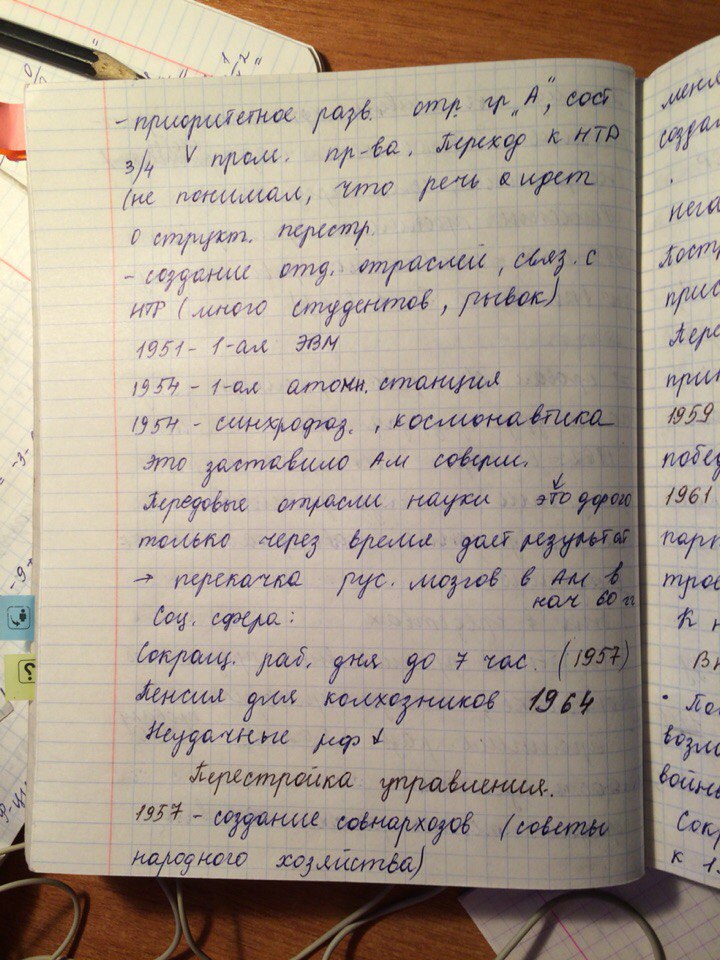 - приоритетное разв. отр. гр „А", сост
3/4 V пром. пр-ва. Переход к НТР
(не понимал, что речь идет
о структ. перестр.
- создание отд. отраслей, связ. с
НТР (много студентов, рывок)
1951 - 1-ая ЭВМ
1954 - 1-ая атомн. станция
1954 - синхрофаз., космонавтика
это заставило Ам соверш.
Передовые отрасли науки это дорого
только через время дает результат
→ перекачка рус. мозгов в Ам в
нач 60 гг
Соц. сфера:
Сокращ. раб. дня до 7 час. (1957)
Пенсия для колхозников 1964
Неудачные реф ↓
Перестройка управления.
1957 - создание совнархозов (советы
народного хозяйства)
меня
созда
нега
Костр
прис
Пере
при
1959
побед
1961
парт
трое
К н
Вн
возмо
войны
Сокр
к 1